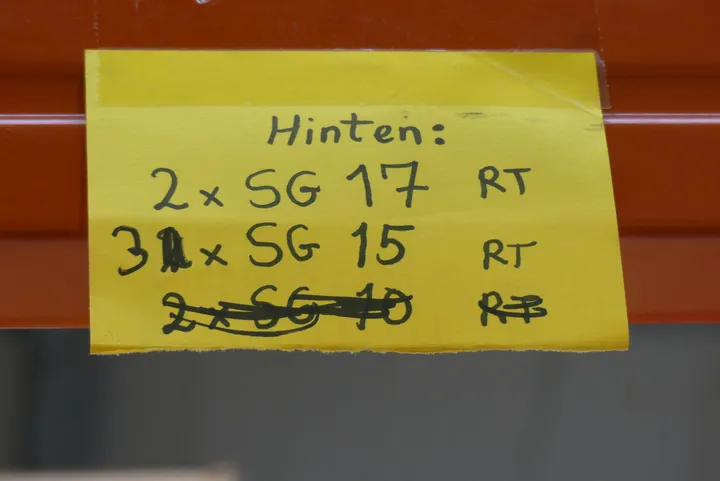 Hinten:
2x SG 17 RT
3x SG 15 RT
2x SG 10 RT